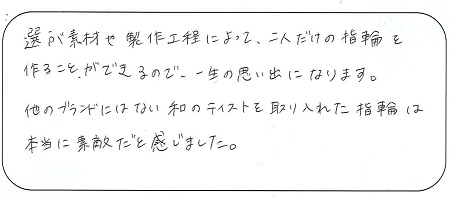 選ぶ素材や製作工程によって、二人だけの指輪を
作ることができるので、一生の思い出になります。
他のブランドにはない和のテイストを取り入れた指輪は
本当に素敵だと感じました。